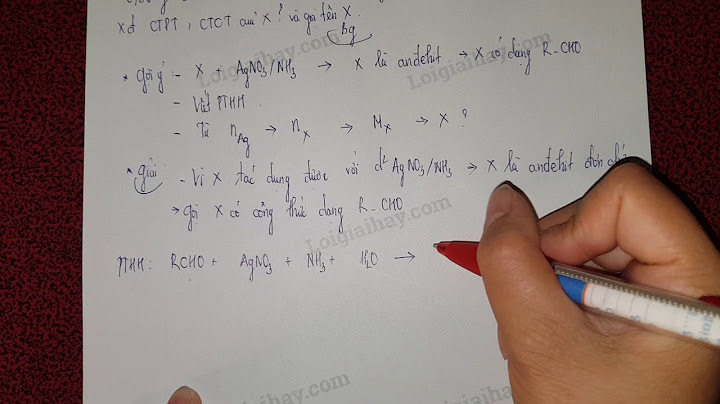 xđ CTPT, CTCT của X ? và gọi tên X.
Bg
* Gợi ý : - X + AgNO₃/NH₃ → X là andehit → X có dạng R-CHO
- Viết PTHH.
- Từ n_Ag → n_X → M_X → X ?
* Giải - Vì X tác dụng được với d² AgNO₃/NH₃ → X là andehit đơn chức
→ gọi X có công thức dạng R-CHO
PTHH : RCHO + AgNO₃ + NH₃ + H₂O →
Loigiaihay.com
Loigiaihay.com
Loigiaihay.com
Loigiaihay.com
Loigiaihay.com
Loigiaihay.com